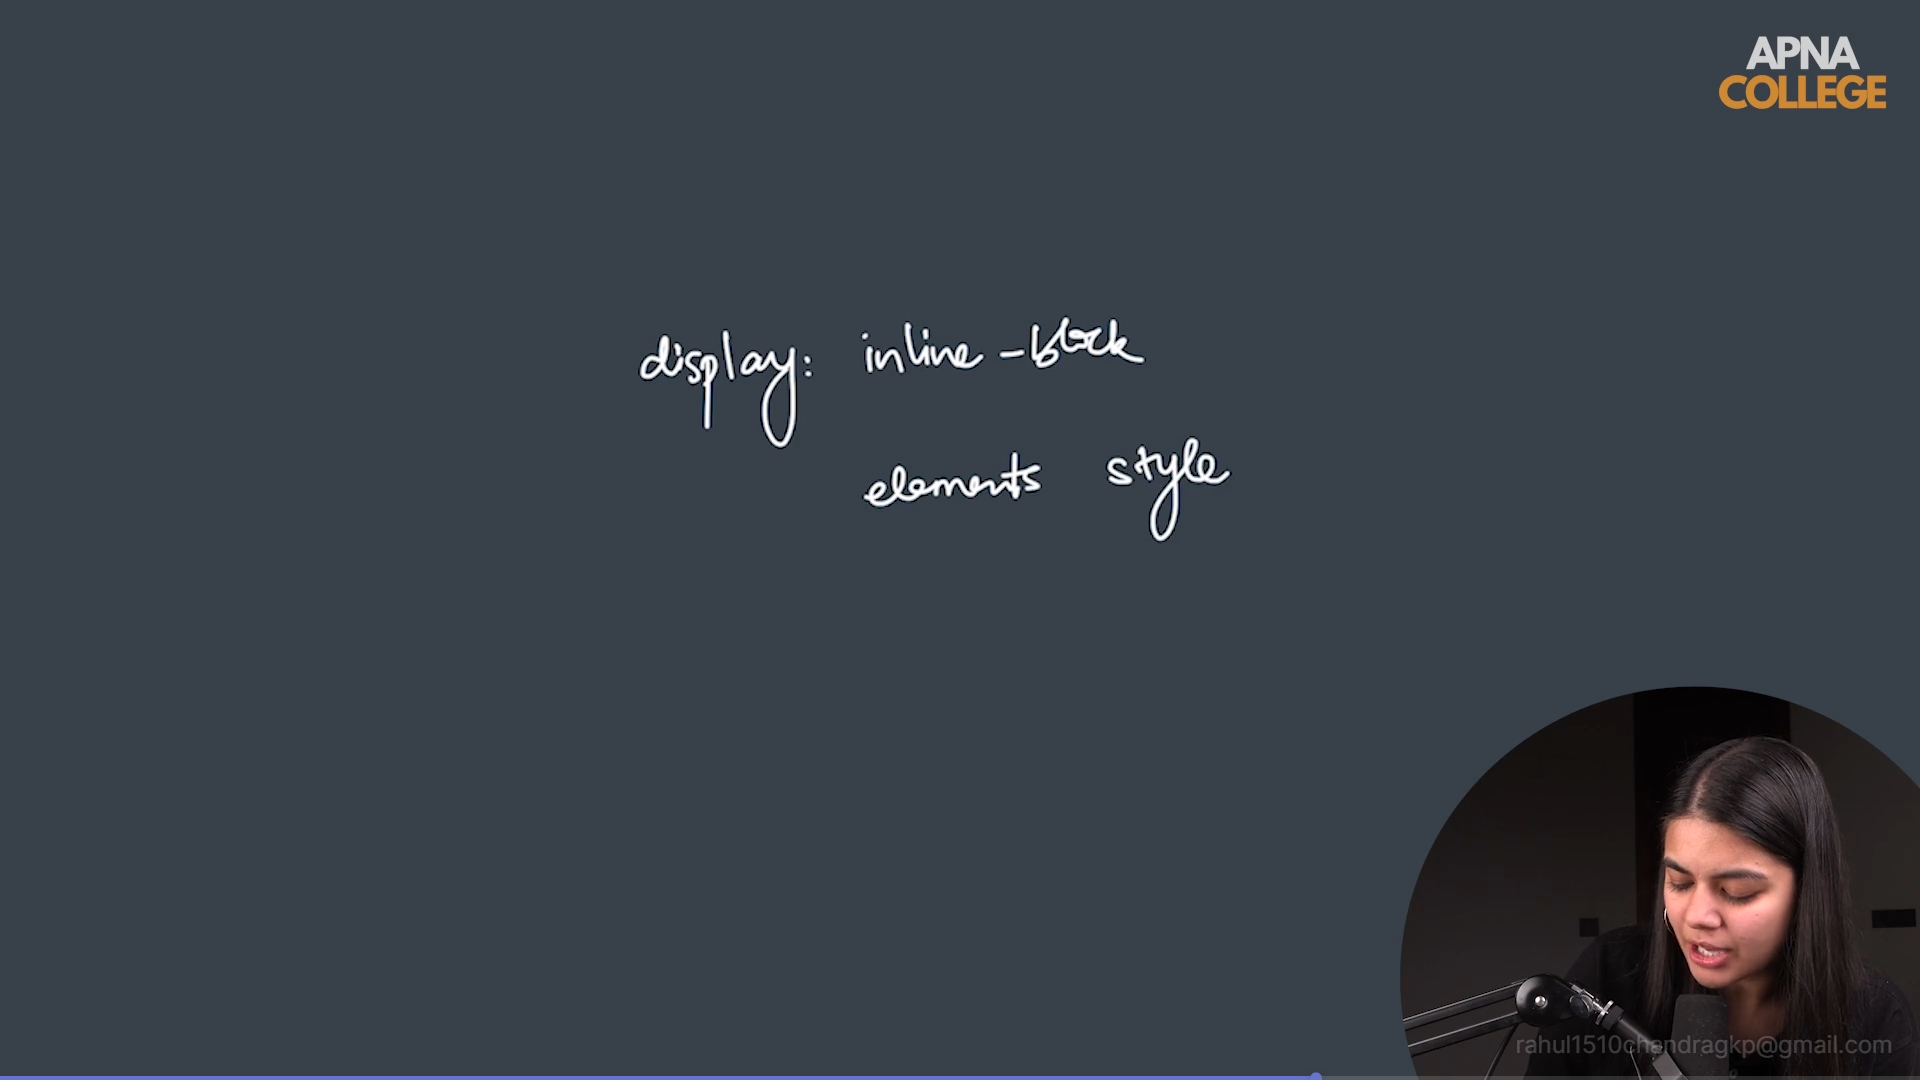 APNA
COLLEGE
display: inline-block
elements style
rahul1510chandragkp@gmail.com